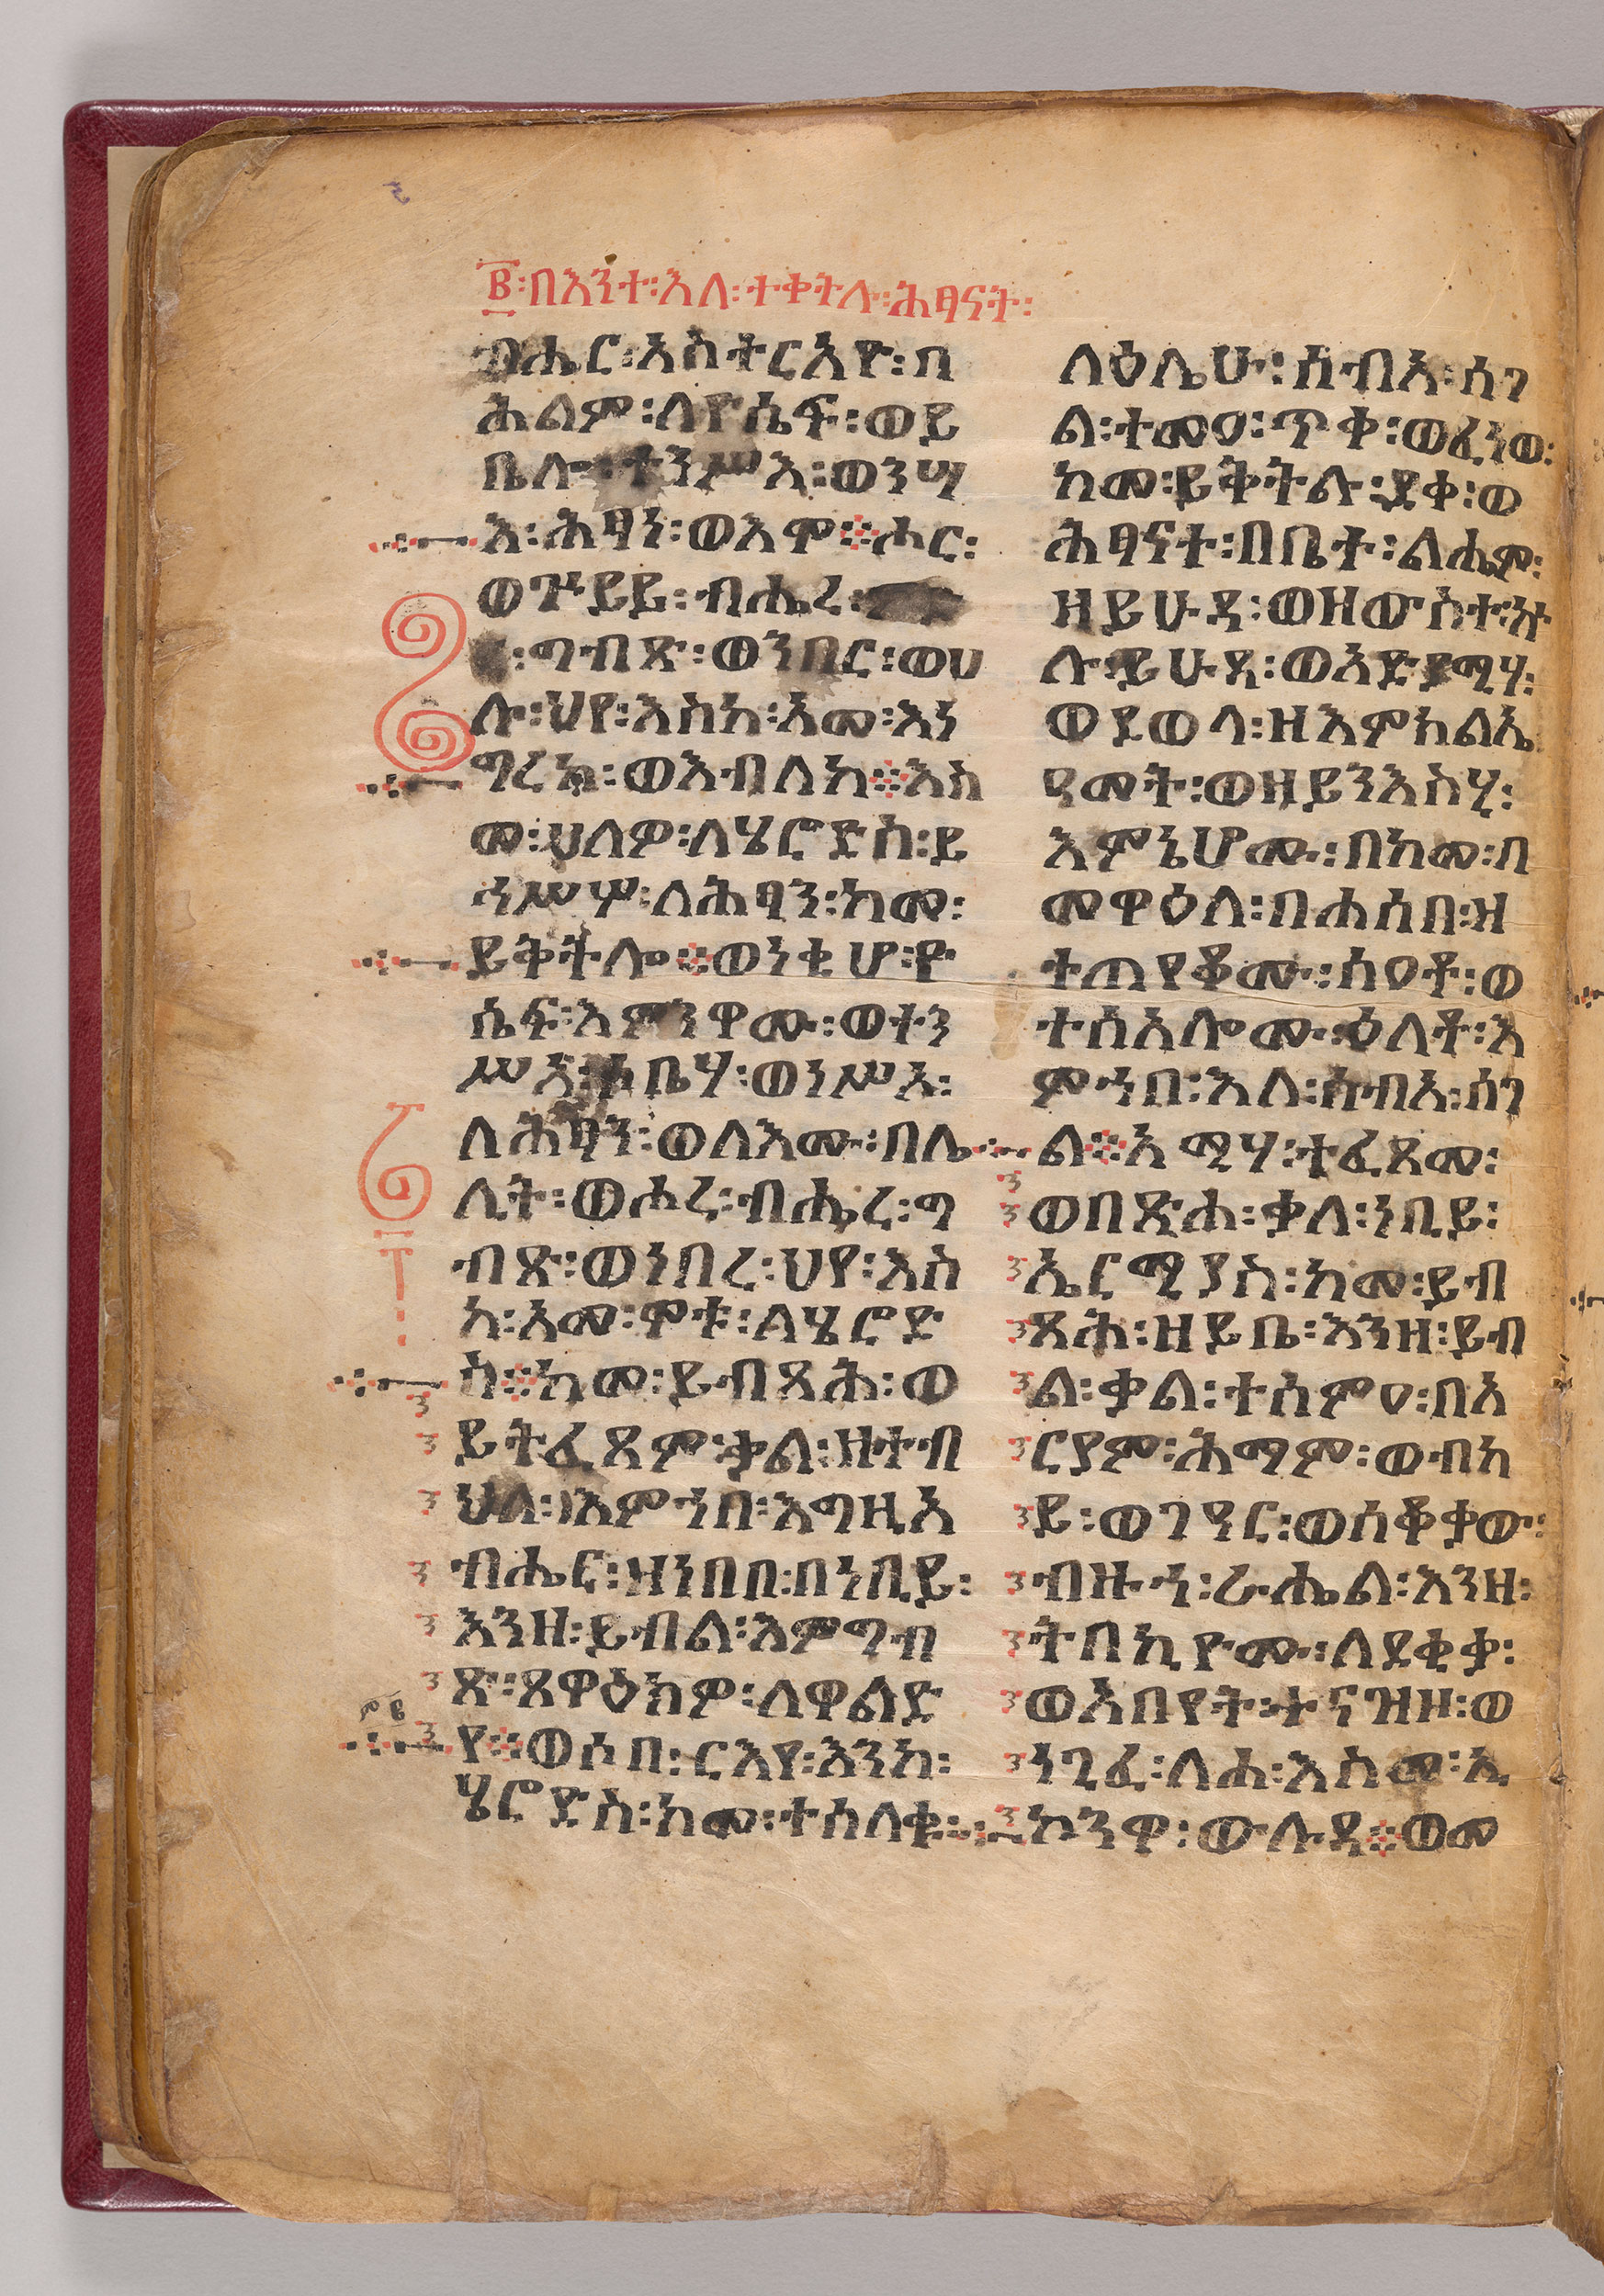 ፪፡በእንተ፡እለ፡ተቀትሉ፡ሕፃናት፡
ብሔር፡አስተርአዮ፡በ
ሕልም፡ለዮሴፍ፡ወይ
ቤሎ፡ተንሥእ፡ወንሣ
እ፡ሕፃነ፡ወእሞ፨ሑር፡
ወጕይይ፡ብሔረ፡
፡ግብጽ፡ወንበር፡ወሀ
ሉ፡ህየ፡እስከ፡አመ፡እነ
ግረከ፡ወእብለከ፨እስ
መ፡ሀለዎ፡ለሄሮድስ፡ይ
ኅሥሥ፡ለሕፃን፡ከመ፡
ይቅትሎ፨ወነቂሆ፡ዮ
ሴፍ፡እምንዋሙ፡ወተን
ሥአ፡ቤሃ፡ወነሥአ፡
ለሕፃን፡ወለእሙ፡በሌ
ሊት፡ወሖረ፡ብሔረ፡ግ
ብጽ፡ወነበረ፡ህየ፡እስ
ከ፡አመ፡ሞቱ፡ለሄሮድ
ስ፨ከመ፡ይብጻሕ፡ወ
ይትፈጸም፡ቃል፡ዘተብ
ህለ፡እምኀበ፡እግዚአ
ብሔር፡ዘነበበ፡በነቢይ፡
እንዘ፡ይብል፡እምግብ
ጽ፡ጸዋዕክዎ፡ለዋልድ
የ፨ወሶበ፡ርእየ፡እንከ፡
ሄሮድስ፡ከመ፡ተሳለቁ፡
ላዕሌሁ፡ሰብአ፡ሰገ
ል፡ተመዐ፡ጥቀ፡ወፈነወ፡
ከመ፡ይቅትሉ፡ደቀ፡ወ
ሕፃናተ፡በቤተ፡ልሔም፡
ዘይሁዳ፡ወዘውስተ፡ኵ
ሉ፡ይሁዳ፡ወአድያሚሃ፡
ወደወላ፡ዘእምክልኤ
ዓመት፡ወዘይንእስሂ፡
እምኔሆሙ፡በከመ፡በ
መዋዕለ፡በሐሰበ፡ዝ
ተጠየቆሙ፡ሰዐቶ፡ወ
ተሰአሎሙ፡ዕለቶ፡እ
ምኀበ፡እለ፡ሰብአ፡ሰገ
ል፨አሚሃ፡ተፈጸመ፡
ወበጽሐ፡ቃለ፡ነቢይ፡
ኤርሚያስ፡ከመ፡ይብ
ጻሕ፡ዘይቤ፡እንዘ፡ይብ
ል፡ቃል፡ተሰምዐ፡በአ
ርያም፡ሕማም፡ወብካ
ይ፡ወገዓር፡ወሰቆቃው፡
ብዙኅ፡ራሔል፡እንዘ፡
ትበኪዮሙ፡ለደቂቃ፡
ወአበየት፡ተናዝዞ፡ወ
ኀጊፈ፡ላሐ፡እስመ፡ኢ
ኮንዋ፡ውሉዳ፨ወመ